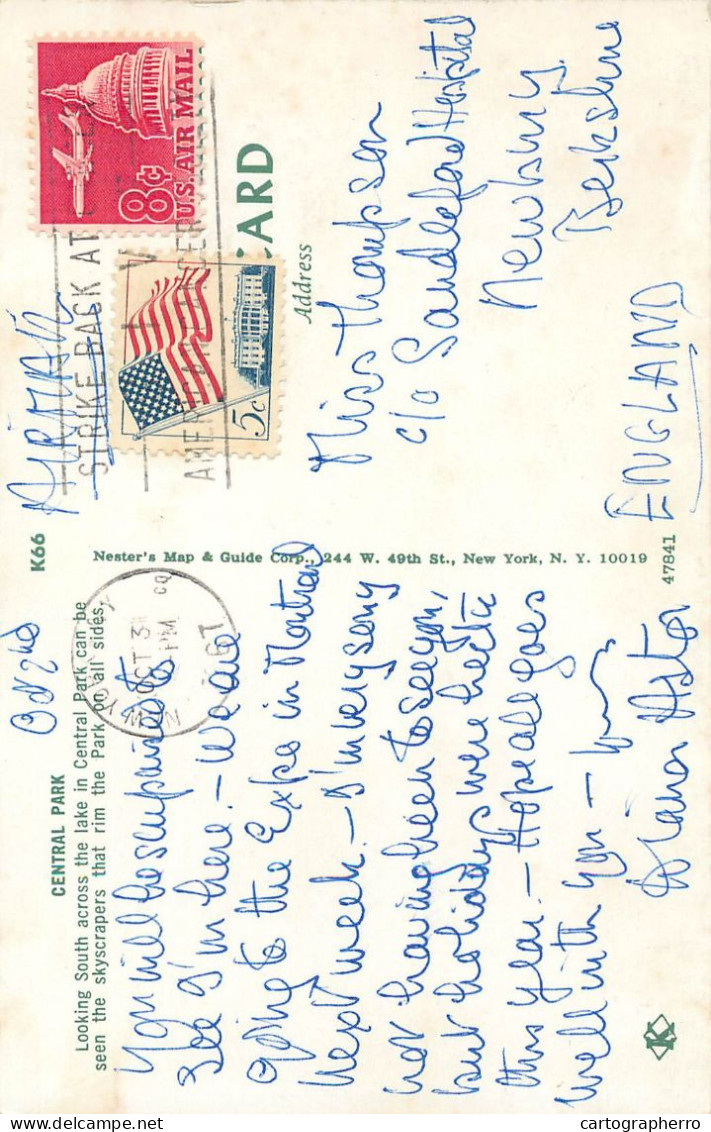 CENTRAL PARK
Looking South across the lake in Central Park can be
seen the skyscrapers that rim the Park on all sides.
K66
Oct 2nd
You will be surprised to
see I'm here. - We are
going to the Expo in Montreal
next week. - I'm very sorry
not having been to see you,
but holidays were hectic
this year. - Hope all goes
well with you -
Astor
Nester's Map & Guide Corp., 244 W. 49th St., New York, N. Y. 10019
47841
K
AIRMAIL
CARD
Address
8c
U.S. AIR MAIL
5c
STRIKE BACK AT
AMERICAN CANCER
NEW YORK, N.Y.
OCT 3
PM
1967
Miss Thompson
c/o Sandleford Hospital
Newbury
Berkshire
ENGLAND
cartographerro